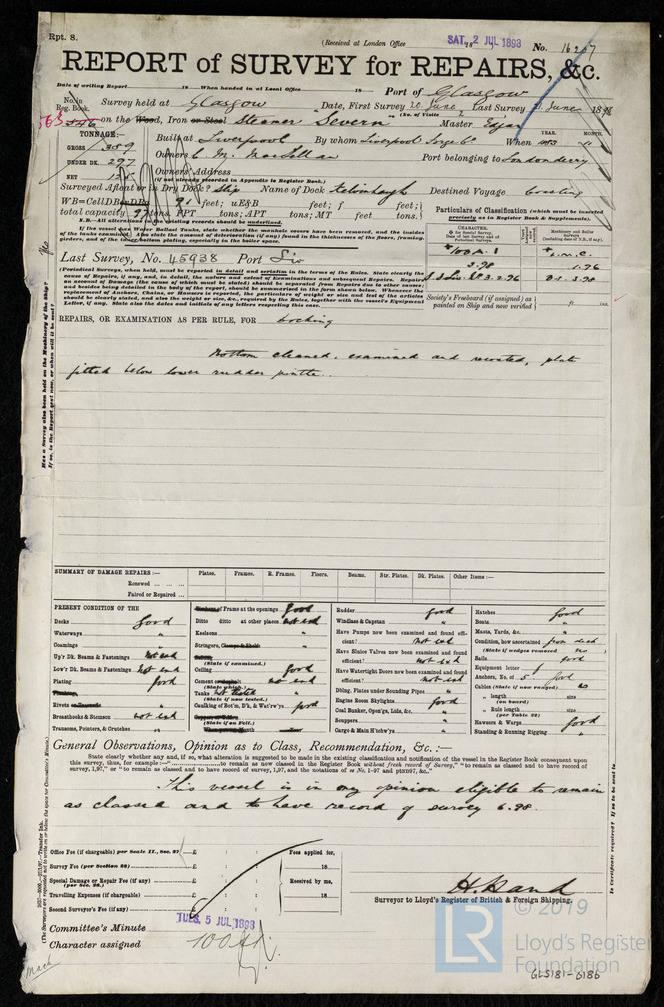 Rpt. 8.
(Received at London Office SAT. 2 JUL 1898
No. 16207
REPORT of SURVEY for REPAIRS, &c.
Date of writing Report 18 When handed in at Local Office 18 Port of Glasgow
No. in Reg. Book.
Survey held at Glasgow Date, First Survey 20 June Last Survey 21 June 1898
(No. of Visits
563 546 on the Wood, Iron or Steel Steamer Severn Master Edgar
TONNAGE:—
GROSS 389
UNDER DK. 297
NET
Built at Liverpool By whom Liverpool Forge Co. When
YEAR. MONTH.
Owners C. M. MacLellan Port belonging to Londonderry
Owners' Address
(if not already recorded in Appendix to Register Book.)
Surveyed Afloat or in Dry Dock? Slip Name of Dock Kelvinhaugh Destined Voyage Coasting
WB=CellDBorDBa 91 feet; uE&B feet; f feet;
total capacity 97 tons. FPT tons; APT tons; MT feet tons.
N.B.—All alterations in the existing records should be underlined.
If the vessel has Water Ballast Tanks, state whether the manhole covers have been removed, and the insides
of the tanks examined. Also state the amount of deterioration (if any) found in the thicknesses of the floors, framing,
girders, and of the inner bottom plating, especially in the boiler space.
Particulars of Classification (which must be inserted
precisely as in Register Book & Supplements).
CHARACTER.
Machinery and Boiler Surveys
(including date of N.B., if any).
Last Survey, No. 45938 Port Liv
*100A.1
3.98
*L.M.C.
1.96
S.S.Liv. No.3-2.96
B.S. 3.98
(Periodical Surveys, when held, must be reported in detail and seriatim in the terms of the Rules. State clearly the
cause of Repairs, if any, and, in detail, the nature and extent of Examinations and subsequent Repairs. Repairs
on account of Damage (the cause of which must be stated) should be separated from Repairs due to other causes;
and besides being detailed in the body of the report, should be summarised in the form shown below. Whenever the
replacement of Anchors, Chains, or Hawsers is reported, the particulars of weight or size and test of the articles
should be clearly stated, and also the weight or size, &c., required by the Rules, together with the vessel's Equipment
Letter, if any. State also the dates and initials of any letters respecting this case.
Society's Freeboard (if assigned) as
painted on Ship and now verified ft. ins.
REPAIRS, OR EXAMINATION AS PER RULE, FOR Docking
Bottom cleaned, examined and recoated, plate
fitted below lower rudder pintle.
SUMMARY OF DAMAGE REPAIRS:—
Plates. Frames. R. Frames. Floors. Beams. Str. Plates. Dk. Plates. Other Items:—
Renewed ... ... ...
Faired or Repaired ...
PRESENT CONDITION OF THE
Decks Good
Waterways "
Coamings "
Up'r Dk. Beams & Fastenings Not exd
Low'r Dk. Beams & Fastenings Not exd
Plating Good
Rivets "
Breasthooks & Stemson Not exd
Transoms, Pointers, & Crutches "
of Frame at the openings Good
Ditto ditto at other places Not exd
Keelsons "
Stringers, "
(State if examined.)
Ceiling Good
Cement Not exd
(State which.)
Tanks
(State if now tested.)
Caulking of Bot'm, D'k, & Wat'rw'ys Good
(State if on Felt.)
Rudder Good
Windlass & Capstan "
Have Pumps now been examined and found effi-
cient? Not exd
Have Sluice Valves now been examined and found
efficient? Not exd
Have Watertight Doors now been examined and found
efficient? Not exd
Dblng. Plates under Sounding Pipes "
Engine Room Skylights Good
Coal Bunker, Open'gs, Lids, &c. "
Scuppers "
Cargo & Main H'tchw'ys "
Hatches Good
Boats "
Masts, Yards, &c. "
Condition, how ascertained from deck
(State if wedges removed no )
Sails Good
Equipment letter
Anchors, No. of 5 Good
Cables (State if now ranged) no
" length size
(on board)
" Rule length size
(per Table 22)
Hawsers & Warps Good
Standing & Running Rigging "
General Observations, Opinion as to Class, Recommendation, &c. :—
State clearly whether any, and if so, what alteration is suggested to be made in the existing classification and notification of the vessel in the Register Book consequent upon
This vessel is in my opinion eligible to remain
as classed and to have record of survey 6.98.
Office Fee (if chargeable) per Scale II., Sec. 27 £ : :
Survey Fee (per Section 28) £ : :
Special Damage or Repair Fee (if any) £ : :
(per Sec. 28.)
Travelling Expenses (if chargeable) £ : :
Second Surveyor's Fee (if any) £ : :
Fees applied for,
18
Received by me,
18
H. Rand
Surveyor to Lloyd's Register of British & Foreign Shipping.
Committee's Minute TUES. 5 JUL 1898
Character assigned 100A1
© 2019
LR Lloyd's Register
Foundation
GLS181-0186